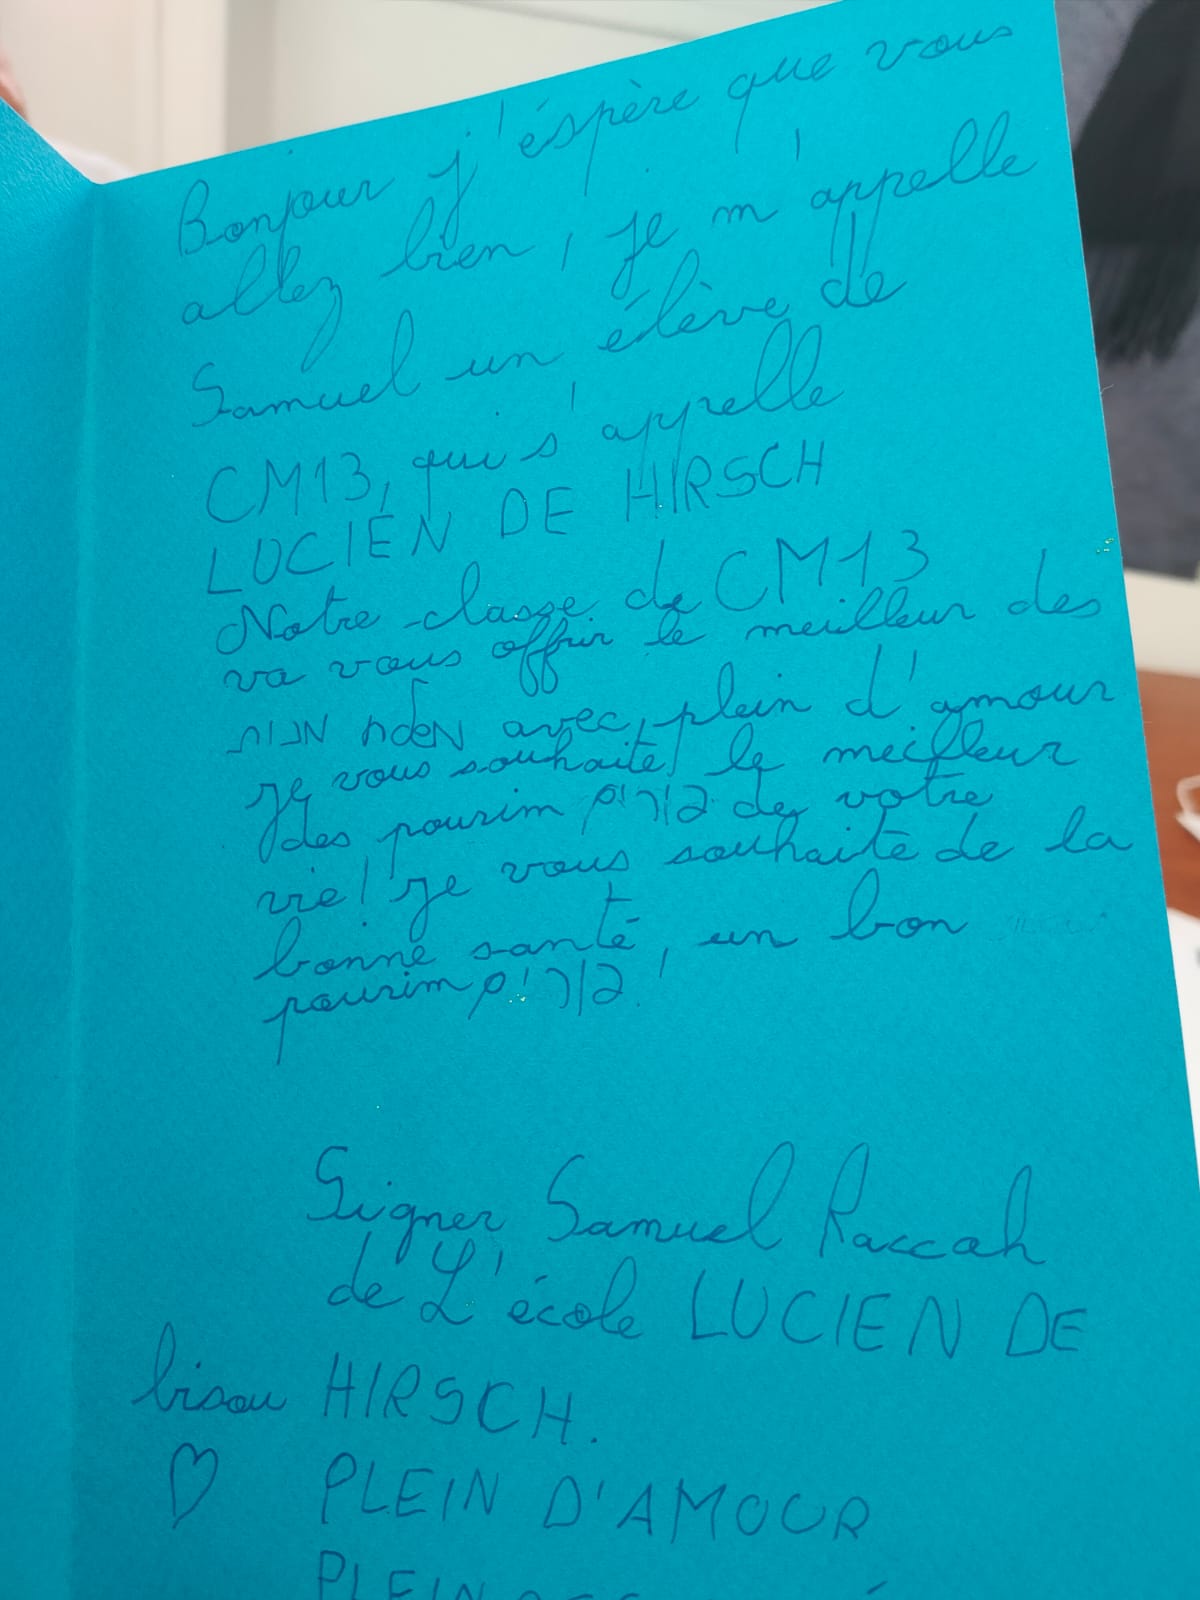 Bonjour j'éspère que vous
allez bien, je m'appelle
Samuel un élève de
CM13, qui s'appelle
LUCIEN DE HIRSCH
Notre classe de CM13
va vous offrir le meilleur des
משלוח מנות avec plein d'amour
je vous souhaite le meilleur
des pourim פורים de votre
vie! je vous souhaite de la
bonne santé, un bon
pourim פורים!
Signer Samuel Raccah
de L'école LUCIEN DE
bisou HIRSCH.
PLEIN D'AMOUR
PLEIN